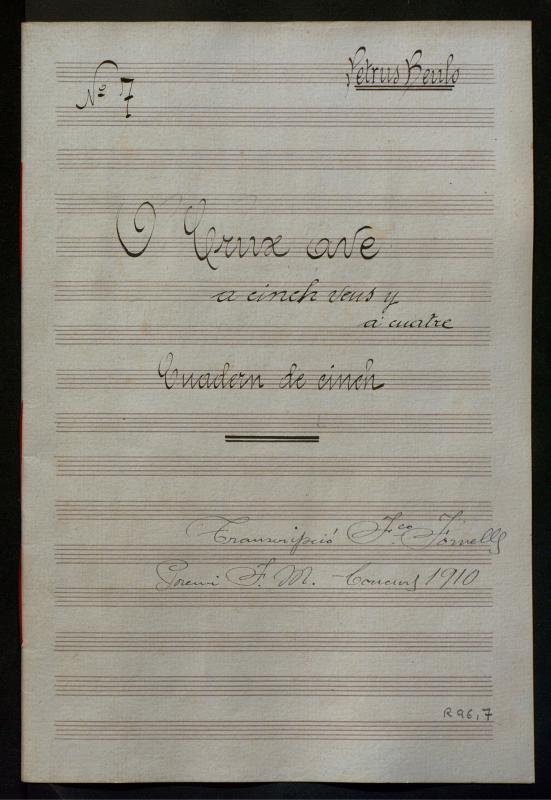 Nº 7
Petrus Beulo
O Crux ave
a cinch veus y
a cuatre
Cuadern de cinch
Transcripció Fco. Fornells
Premi F. M. Concurs 1910
R 96,7